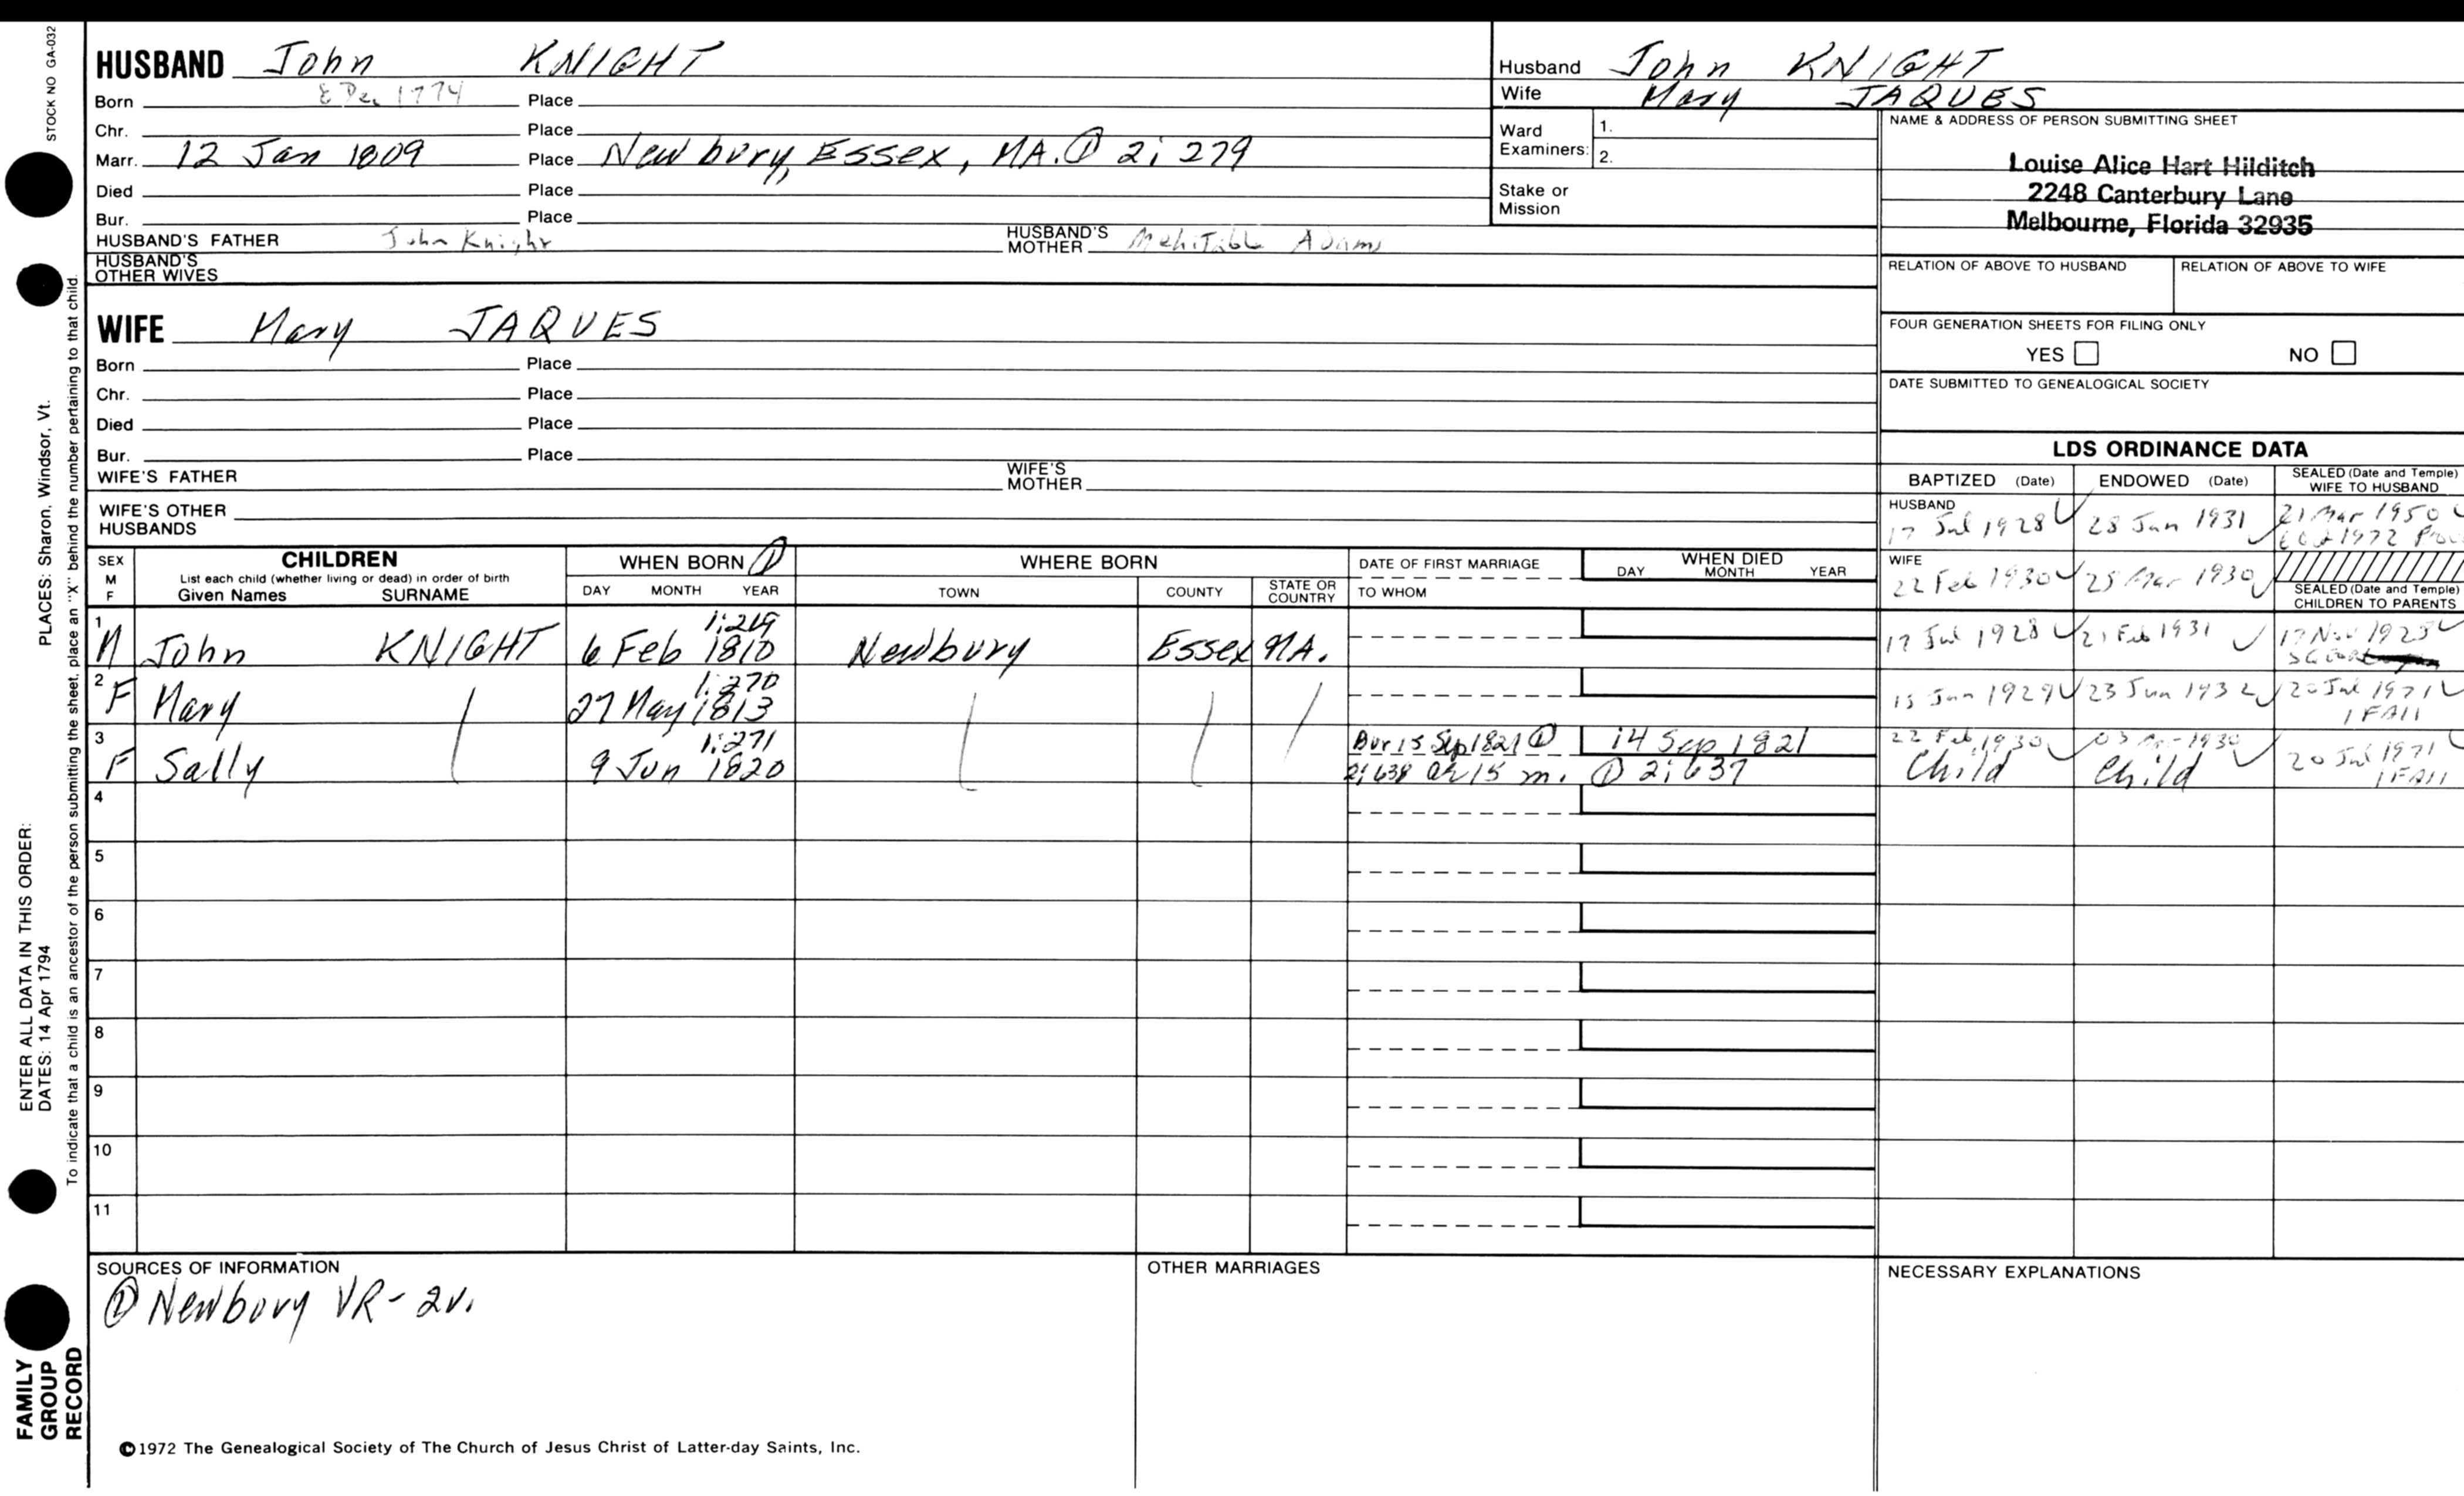 STOCK NO GA-032
PLACES: Sharon, Windsor, Vt.
ENTER ALL DATA IN THIS ORDER:
DATES: 14 Apr 1794
To indicate that a child is an ancestor of the person submitting the sheet, place an "X" behind the number pertaining to that child.
FAMILY
GROUP
RECORD
HUSBAND John KNIGHT
Born 8 Dec 1774 Place
Chr. Place
Marr. 12 Jan 1809 Place Newbury, Essex, MA. ① 2; 279
Died Place
Bur. Place
HUSBAND'S FATHER John Knight HUSBAND'S MOTHER Mehitable Adams
HUSBAND'S
OTHER WIVES
WIFE Mary JAQUES
Born Place
Chr. Place
Died Place
Bur. Place
WIFE'S FATHER WIFE'S MOTHER
WIFE'S OTHER
HUSBANDS
Husband John KNIGHT
Wife Mary JAQUES
Ward
Examiners: 1.
2.
Stake or
Mission
NAME & ADDRESS OF PERSON SUBMITTING SHEET
Louise Alice Hart Hilditch
2248 Canterbury Lane
Melbourne, Florida 32935
RELATION OF ABOVE TO HUSBAND RELATION OF ABOVE TO WIFE
FOUR GENERATION SHEETS FOR FILING ONLY
YES NO
DATE SUBMITTED TO GENEALOGICAL SOCIETY
LDS ORDINANCE DATA
BAPTIZED (Date) ENDOWED (Date) SEALED (Date and Temple) WIFE TO HUSBAND
HUSBAND
17 Jul 1928 ✓ 28 Jan 1931 ✓ 21 Mar 1950
1972
WIFE
22 Feb 1930 ✓ 25 Mar 1930 ✓
SEALED (Date and Temple)
CHILDREN TO PARENTS
SEX M F CHILDREN WHEN BORN ① WHERE BORN DATE OF FIRST MARRIAGE WHEN DIED
List each child (whether living or dead) in order of birth
Given Names SURNAME DAY MONTH YEAR TOWN COUNTY STATE OR COUNTRY TO WHOM DAY MONTH YEAR
1 M John KNIGHT 6 Feb 1810 1:219 Newbury Essex MA. 17 Jul 1928 ✓ 21 Feb 1931 ✓
2 F Mary 27 May 1813 1:270 15 Jan 1929 ✓ 23 Jun 1932 ✓ 20 Jul 1971 ✓
1FAll
3 F Sally 9 Jun 1820 1:271 Bur 15 Sep 1821 ① 14 Sep 1821 22 Feb 1930 ✓ 1930 ✓ 20 Jul 1971 ✓
2; 638 ae 15 m. ① 2; 637 Child Child 1FAll
4
5
6
7
8
9
10
11
SOURCES OF INFORMATION
① Newbury VR - 2v.
OTHER MARRIAGES
NECESSARY EXPLANATIONS
©1972 The Genealogical Society of The Church of Jesus Christ of Latter-day Saints, Inc.